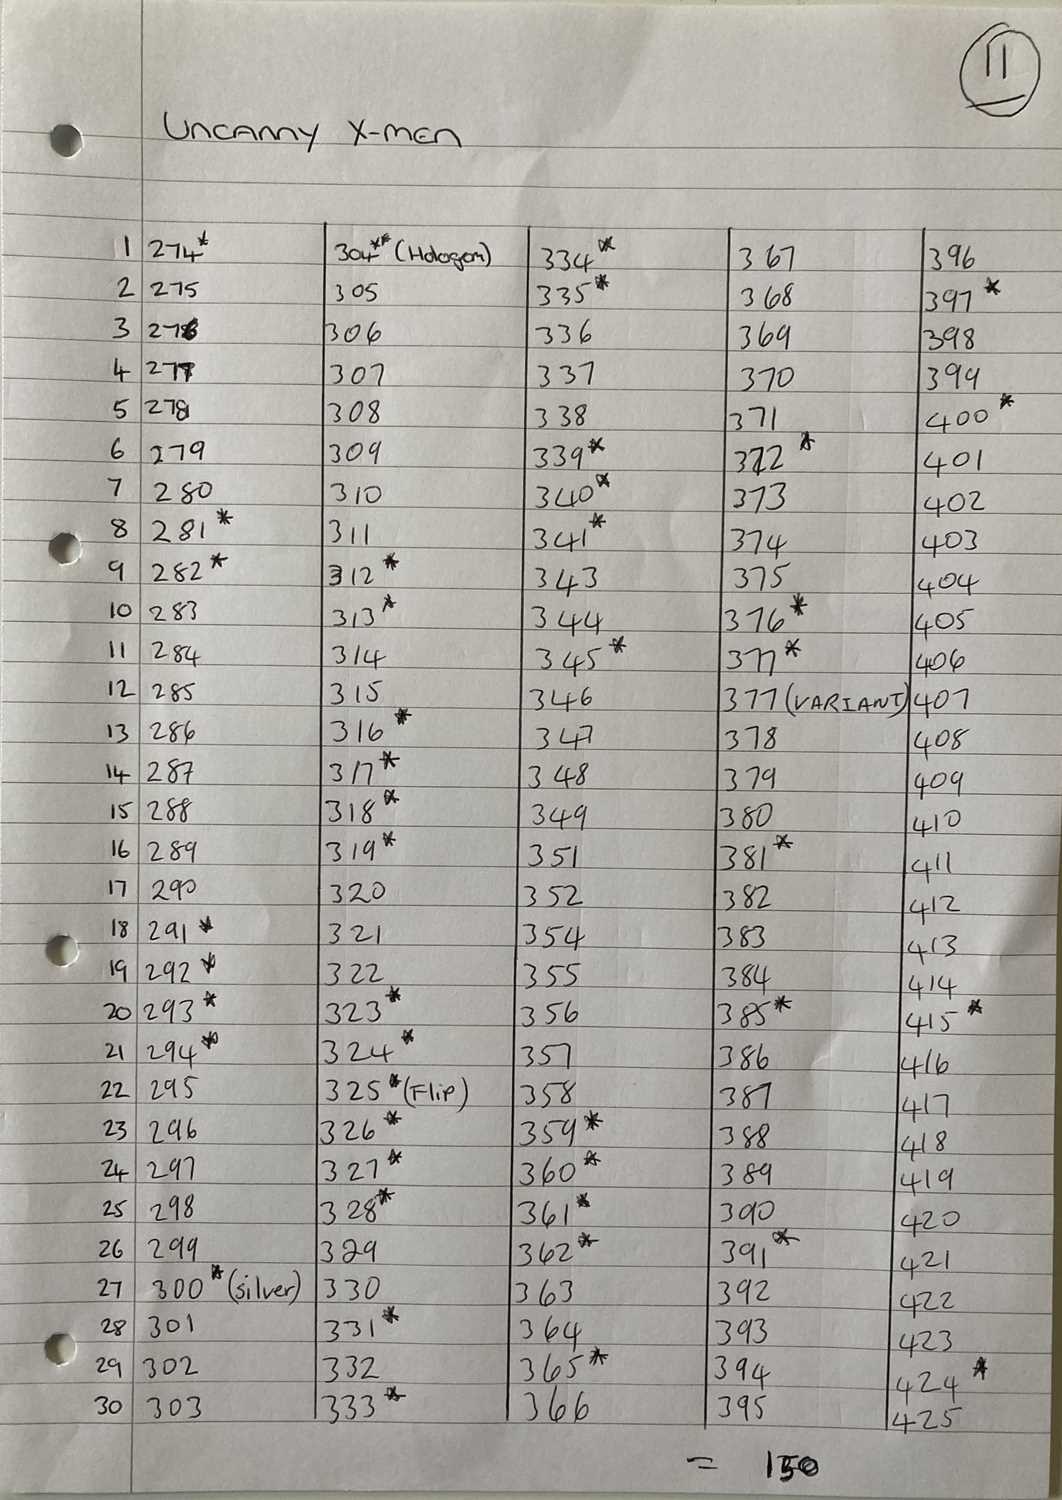 11
UNCANNY X-MEN
1 274* 304** (Hologom) 334* 367 396
2 275 305 335* 368 397*
3 276 306 336 369 398
4 277 307 337 370 399
5 278 308 338 371 400*
6 279 309 339* 372* 401
7 280 310 340* 373 402
8 281* 311 341* 374 403
9 282* 312* 343 375 404
10 283 313* 344 376* 405
11 284 314 345* 377* 406
12 285 315 346 377 (VARIANT) 407
13 286 316* 347 378 408
14 287 317* 348 379 409
15 288 318* 349 380 410
16 289 319* 351 381* 411
17 290 320 352 382 412
18 291* 321 354 383 413
19 292* 322 355 384 414
20 293* 323* 356 385* 415*
21 294* 324* 357 386 416
22 295 325* (Flip) 358 387 417
23 296 326* 359* 388 418
24 297 327* 360* 389 419
25 298 328* 361* 390 420
26 299 329 362* 391* 421
27 300* (silver) 330 363 392 422
28 301 331* 364 393 423
29 302 332 365* 394 424*
30 303 333* 366 395 425
= 150